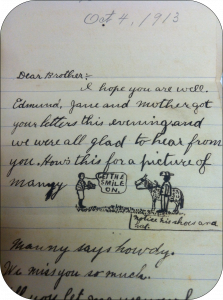 Oct 4, 1913
Dear Brother:
I hope you are well.
Edmund, Jane and mother got
your letters this evening and
we were all glad to hear from
you. How's this for a picture of
manny
SMILE
ON
notice his shoes and
hat
Manny says howdy.
We miss you so much.